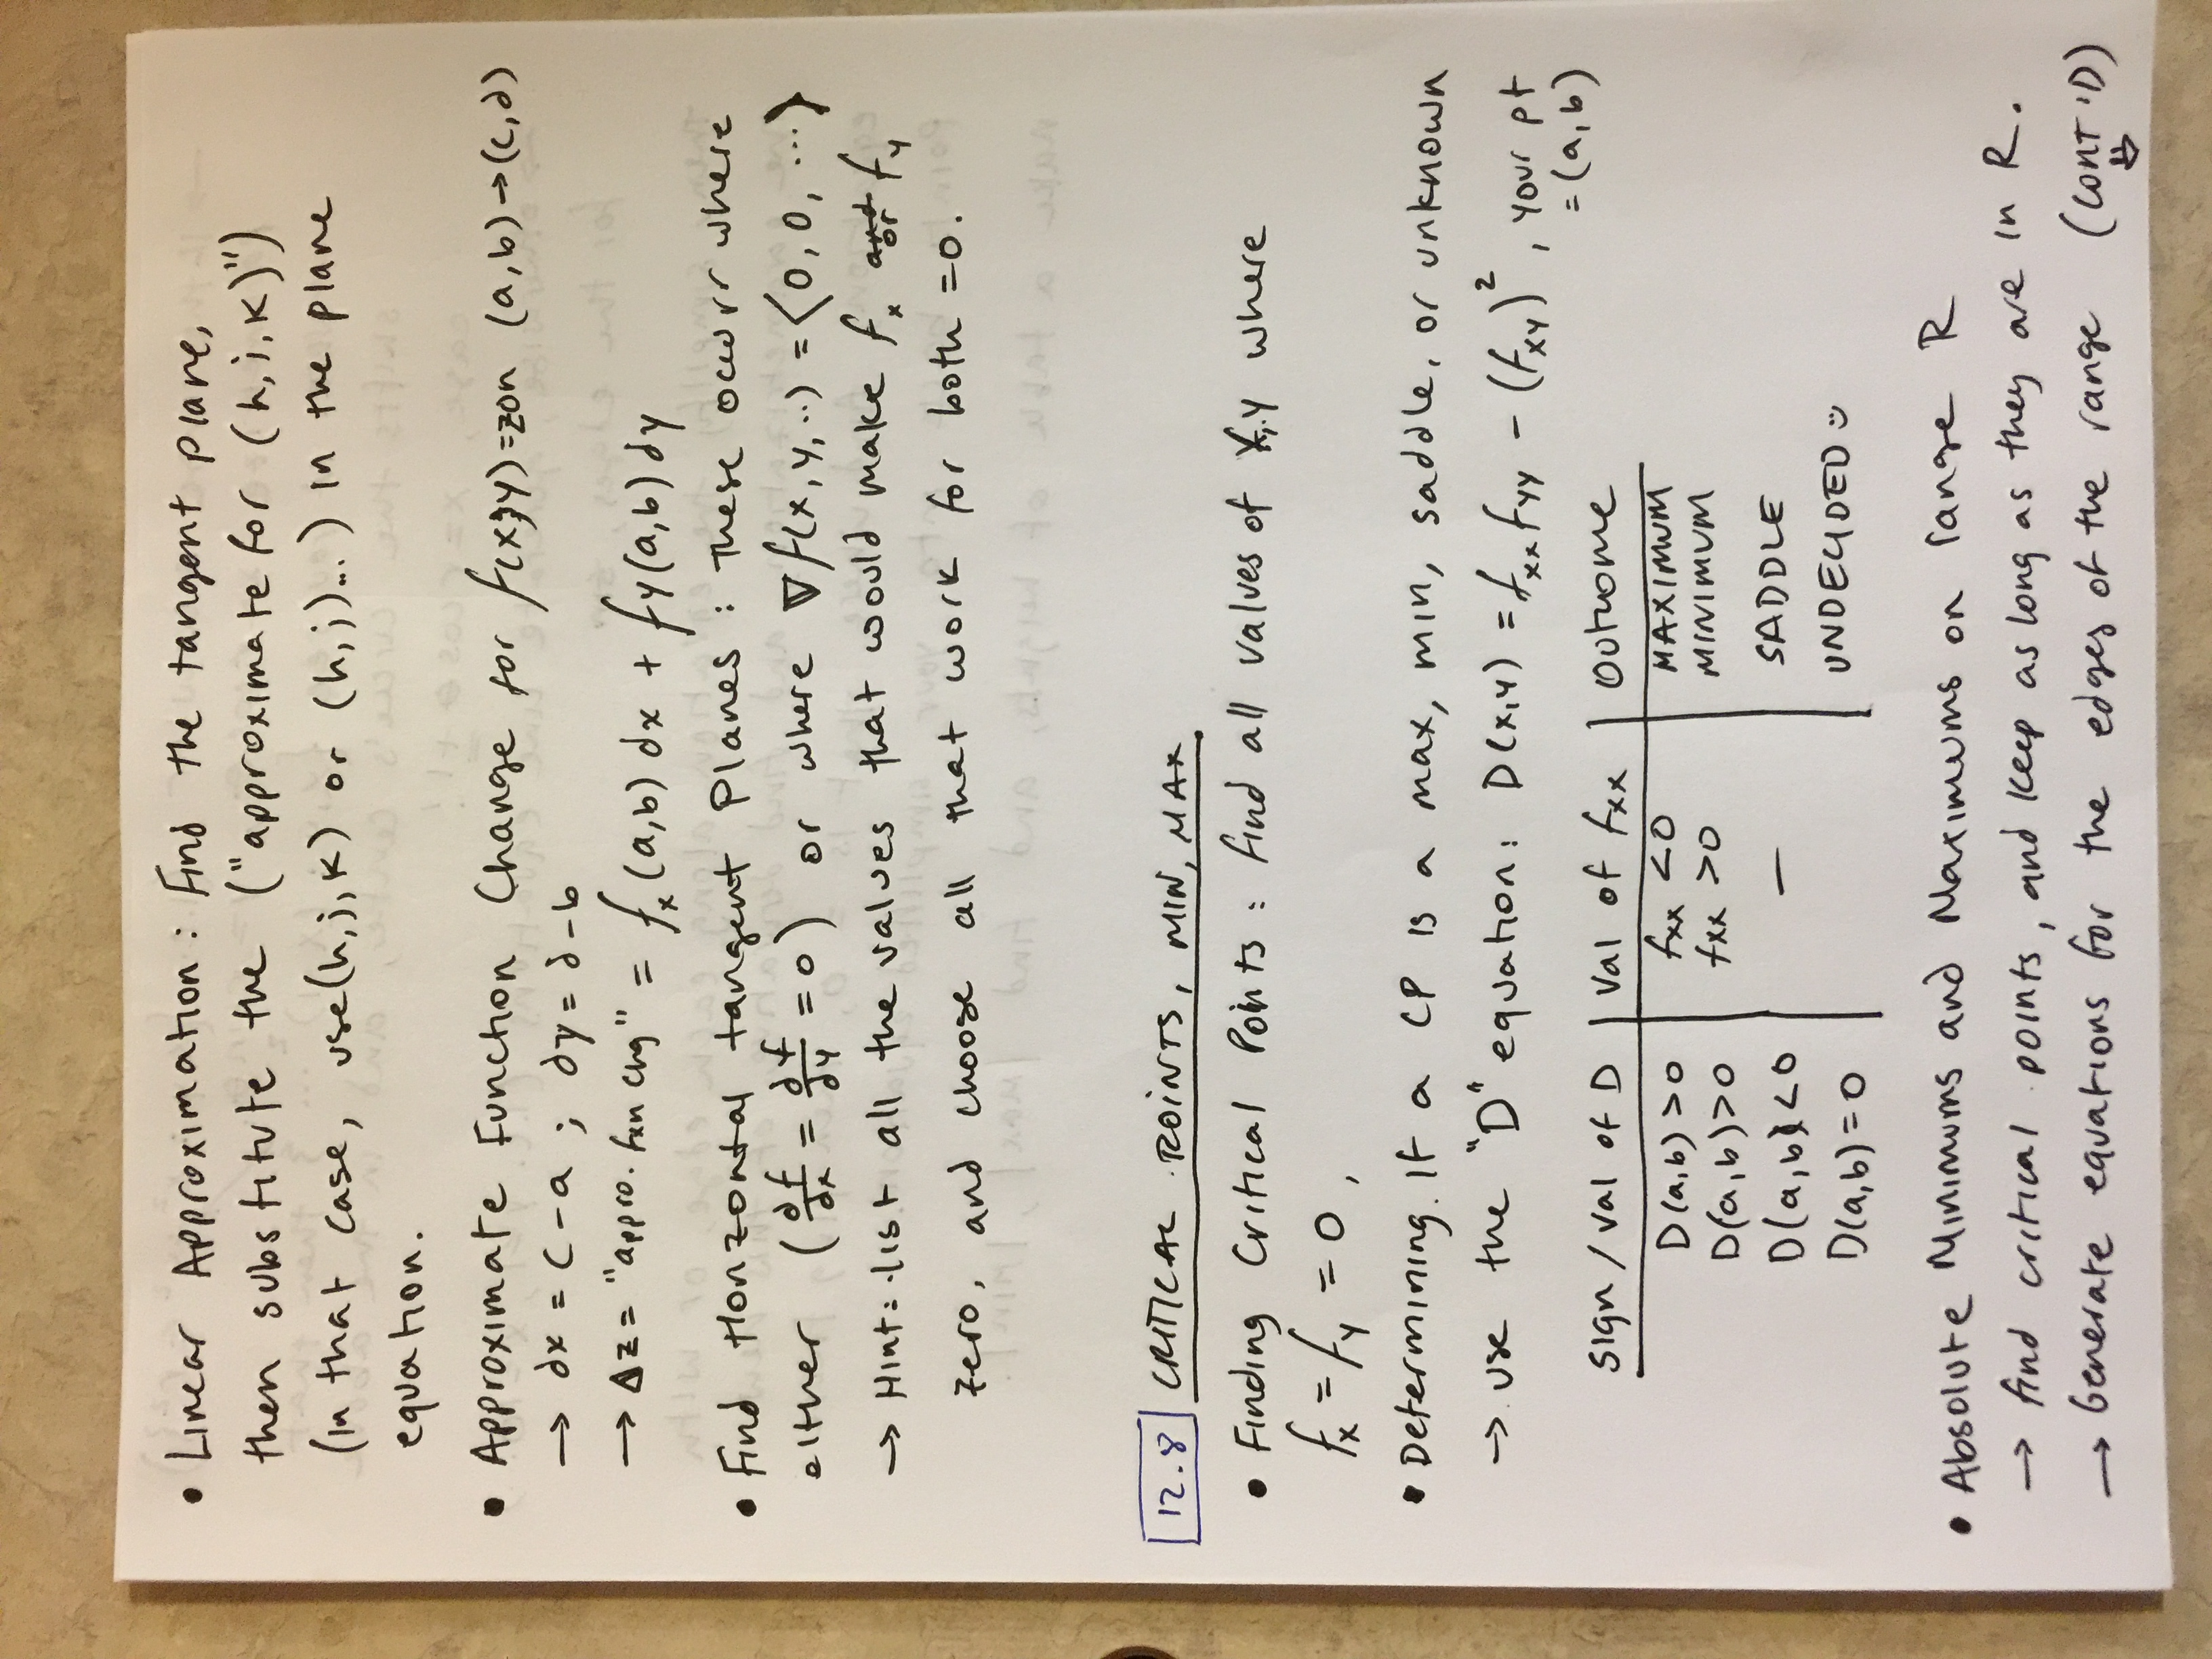 • Linear Approximation: Find the tangent plane,
then substitute the ("approximate for (h,j,k)")
(in that case, use (h,j,k) or (h,j)...) in the plane
equation.
• Approximate Function Change for f(x,y)=z on (a,b)→(c,d)
→ dx = c-a ; dy = d-b
→ Δz = "appro. fxn chg" = fₓ(a,b) dx + fy(a,b) dy
• Find Horizontal tangent Planes: These occurr where
either (∂f/∂x = ∂f/∂y = 0) or where ∇f(x,y,..) = ⟨0,0,...⟩
→ Hint: list all the values that would make fₓ or fy
zero, and choose all that work for both =0.
12.8 CRITICAL POINTS, MIN, MAX
• Finding Critical Points: find all values of x,y where
fₓ = fy = 0,
• Determining if a CP is a max, min, saddle, or unknown
→ use the "D" equation: D(x,y) = fxx fyy - (fxy)², your pt
= (a,b)
Sign / val of D | Val of fxx | Outcome
D(a,b) >0 fxx <0 MAXIMUM
D(a,b)>0 fxx >0 MINIMUM
D(a,b)<0 — SADDLE
D(a,b)=0 UNDECIDED
• Absolute Minimums and Maximums on range R
→ find critical points, and keep as long as they are in R.
→ Generate equations for the edges of the range (CONT'D)